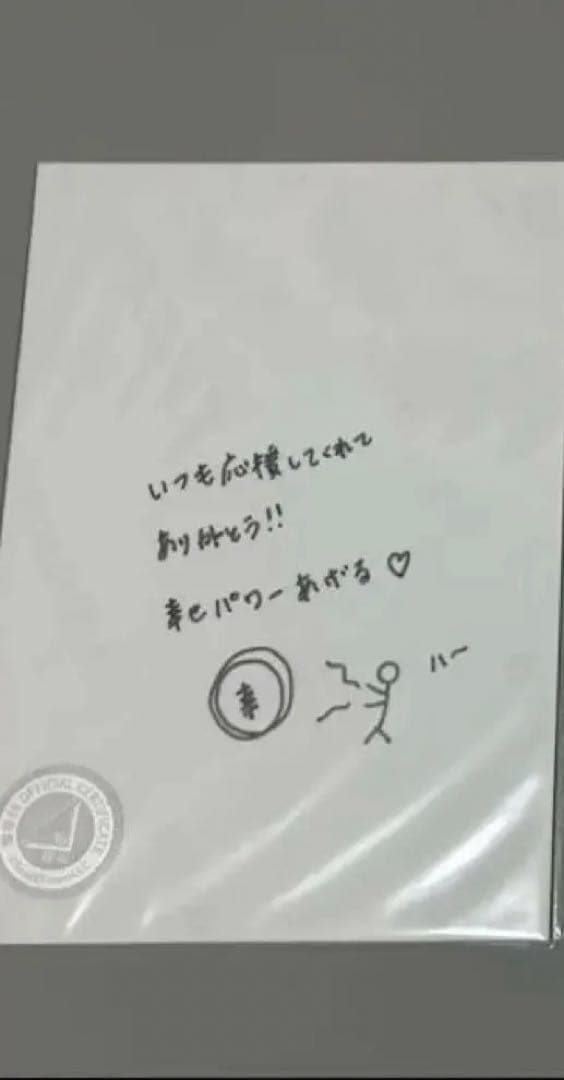 いつも応援してくれて
ありがとう!!
幸せパワーあげる♡
幸
ハー
OFFICIAL CERTIFICATE